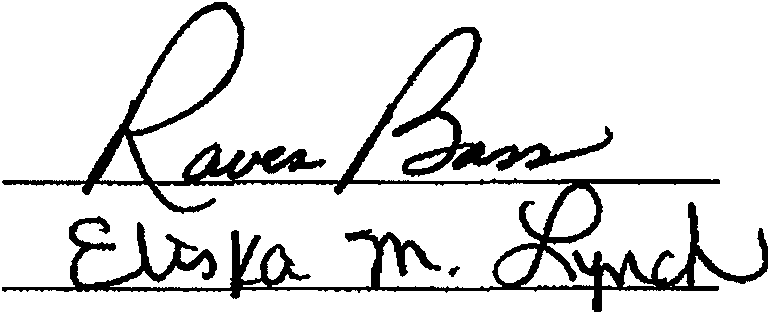 Raves Bass
Eliska M. Lynch